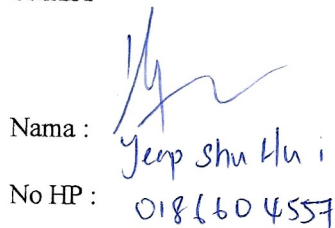 Nama : Yeap Shu Hui
No HP : 0186604557